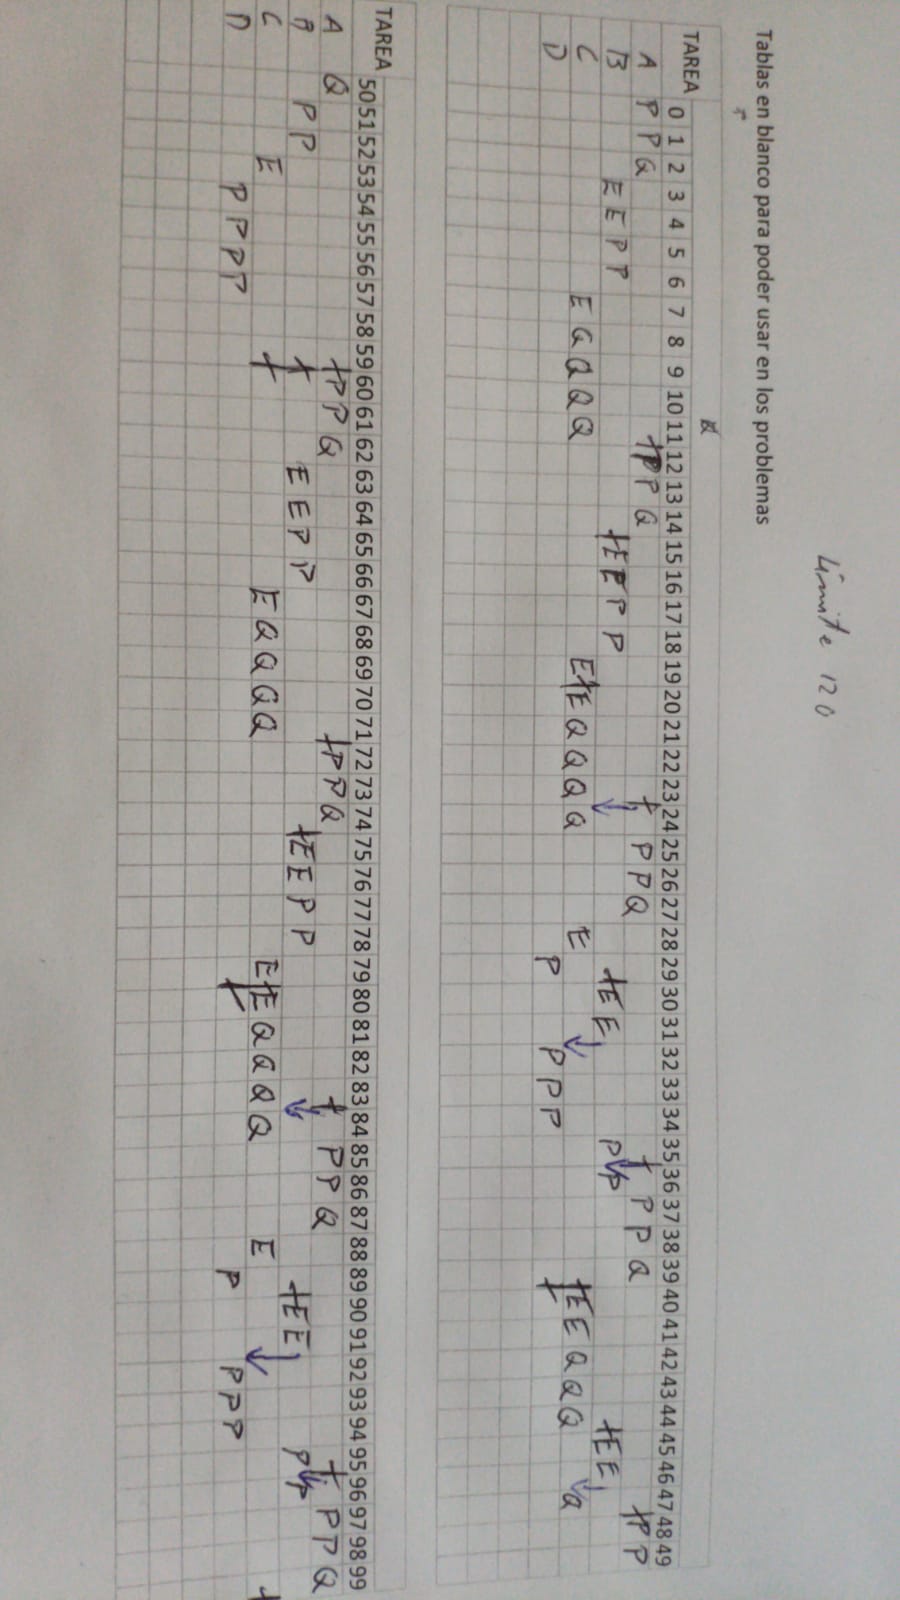 Límite 120
Tablas en blanco para poder usar en los problemas
TAREA 0 1 2 3 4 5 6 7 8 9 10 11 12 13 14 15 16 17 18 19 20 21 22 23 24 25 26 27 28 29 30 31 32 33 34 35 36 37 38 39 40 41 42 43 44 45 46 47 48 49
A P P Q P P Q P P Q P P Q P P
B E E P P E E P P E E P P E E
C E Q Q Q Q E E Q Q Q Q E E E Q Q Q Q
D P P P P
TAREA 50 51 52 53 54 55 56 57 58 59 60 61 62 63 64 65 66 67 68 69 70 71 72 73 74 75 76 77 78 79 80 81 82 83 84 85 86 87 88 89 90 91 92 93 94 95 96 97 98 99
A Q P P Q P P Q P P Q P P Q
B P P E E P P E E P P E E P P
C E E Q Q Q Q E E Q Q Q Q E
D P P P P P P P P